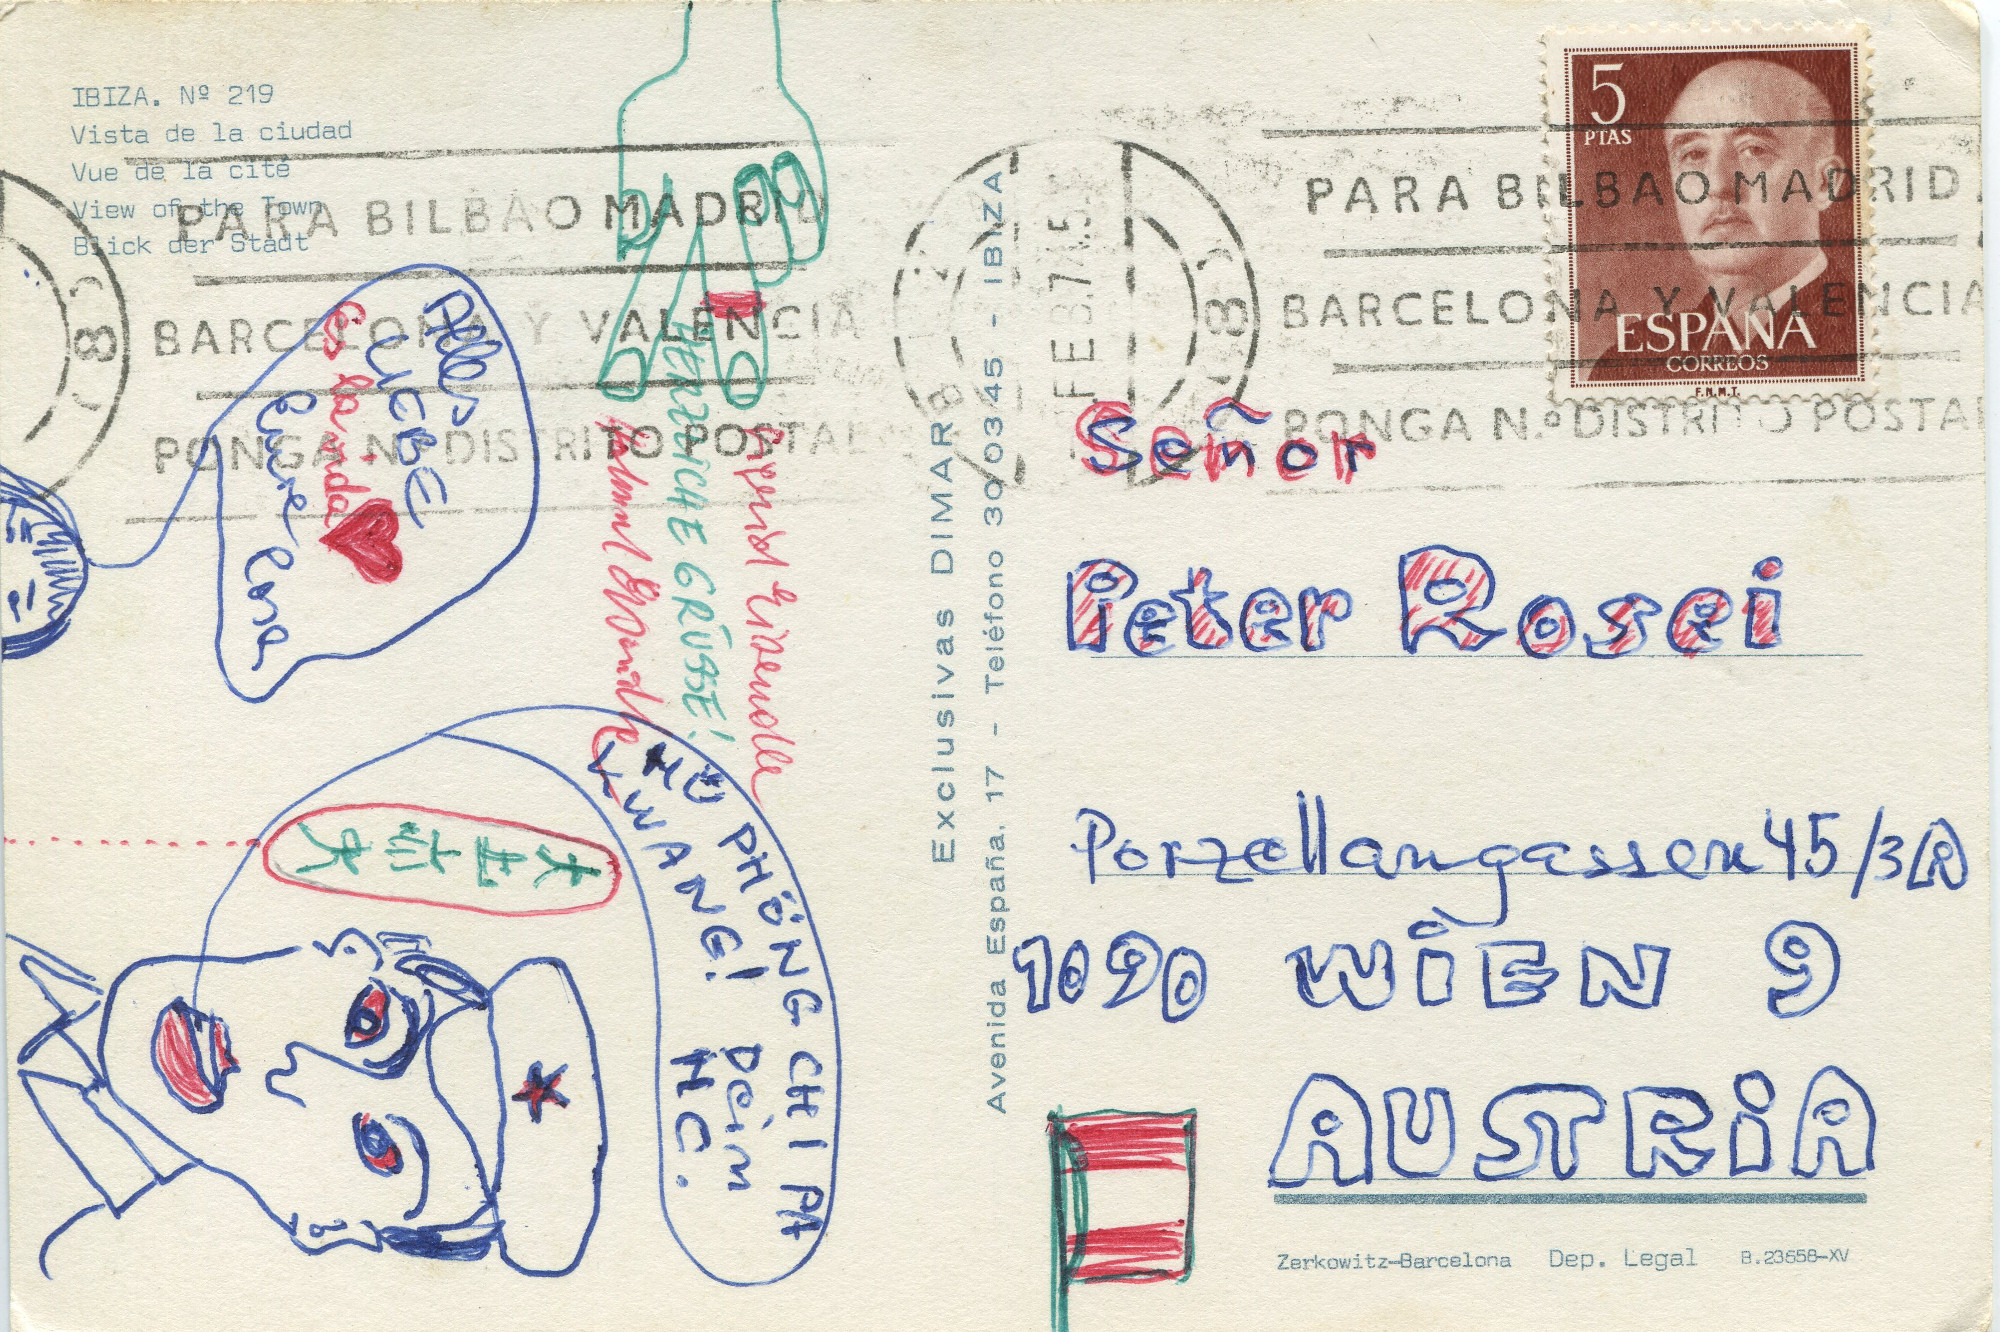 IBIZA. Nº 219
Vista de la ciudad
Vue de la cité
View of the Town
Blick der Stadt
PARA BILBAO MADRID
BARCELONA Y VALENCIA
PONGA N.º DISTRITO POSTAL
Alles
LIEBE
Eure Rosa
HERZLICHE GRÜSSE!
HÜ PHÖNG CHI PA
KWANG!
Dein
HC.
Exclusivas DIMAR
Avenida España, 17 - Teléfono 30 03 45 - IBIZA
FEB.74
5 PTAS
ESPAÑA
CORREOS
F.N.M.T.
PARA BILBAO MADRID
BARCELONA Y VALENCIA
PONGA N.º DISTRITO POSTAL
Señor
Peter Rosei
Porzellangassen 45/3A
1090 WiEN 9
AUSTRiA
Zerkowitz-Barcelona Dep. Legal B.23658-XV